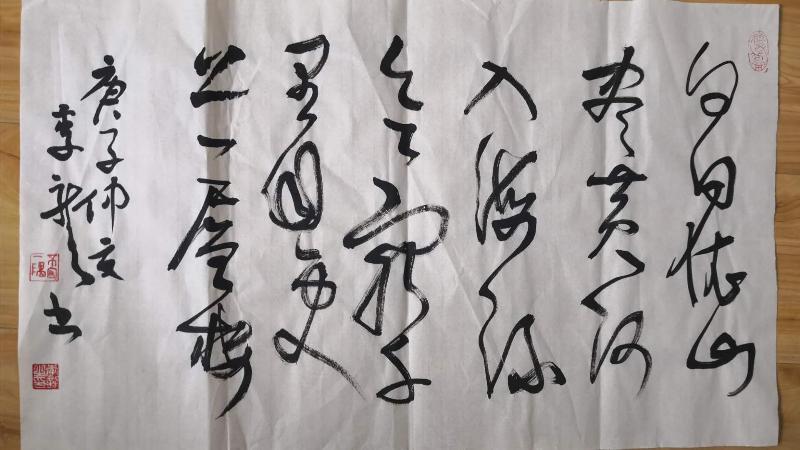 白日依山
盡黄河
入海流
欲窮千
里目更
上一層樓
庚子仲夏
李新 书